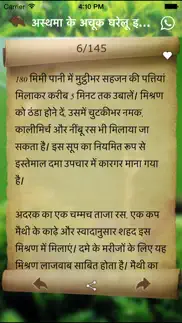 Carrier
4:10 PM
अस्थमा के अचूक घरेलू इ...
6/145
180 मिमी पानी में मुट्ठीभर सहजन की पत्तियां
मिलाकर करीब 5 मिनट तक उबालें। मिश्रण
को ठंडा होने दें, उसमें चुटकीभर नमक,
कालीमिर्च और नींबू रस भी मिलाया जा
सकता है। इस सूप का नियमित रूप से
इस्तेमाल दमा उपचार में कारगर माना गया
है।
अदरक का एक चम्मच ताजा रस, एक कप
मैथी के काढ़े और स्वादानुसार शहद इस
मिश्रण में मिलाएं। दमे के मरीजों के लिए यह
मिश्रण लाजवाब साबित होता है। मैथी का